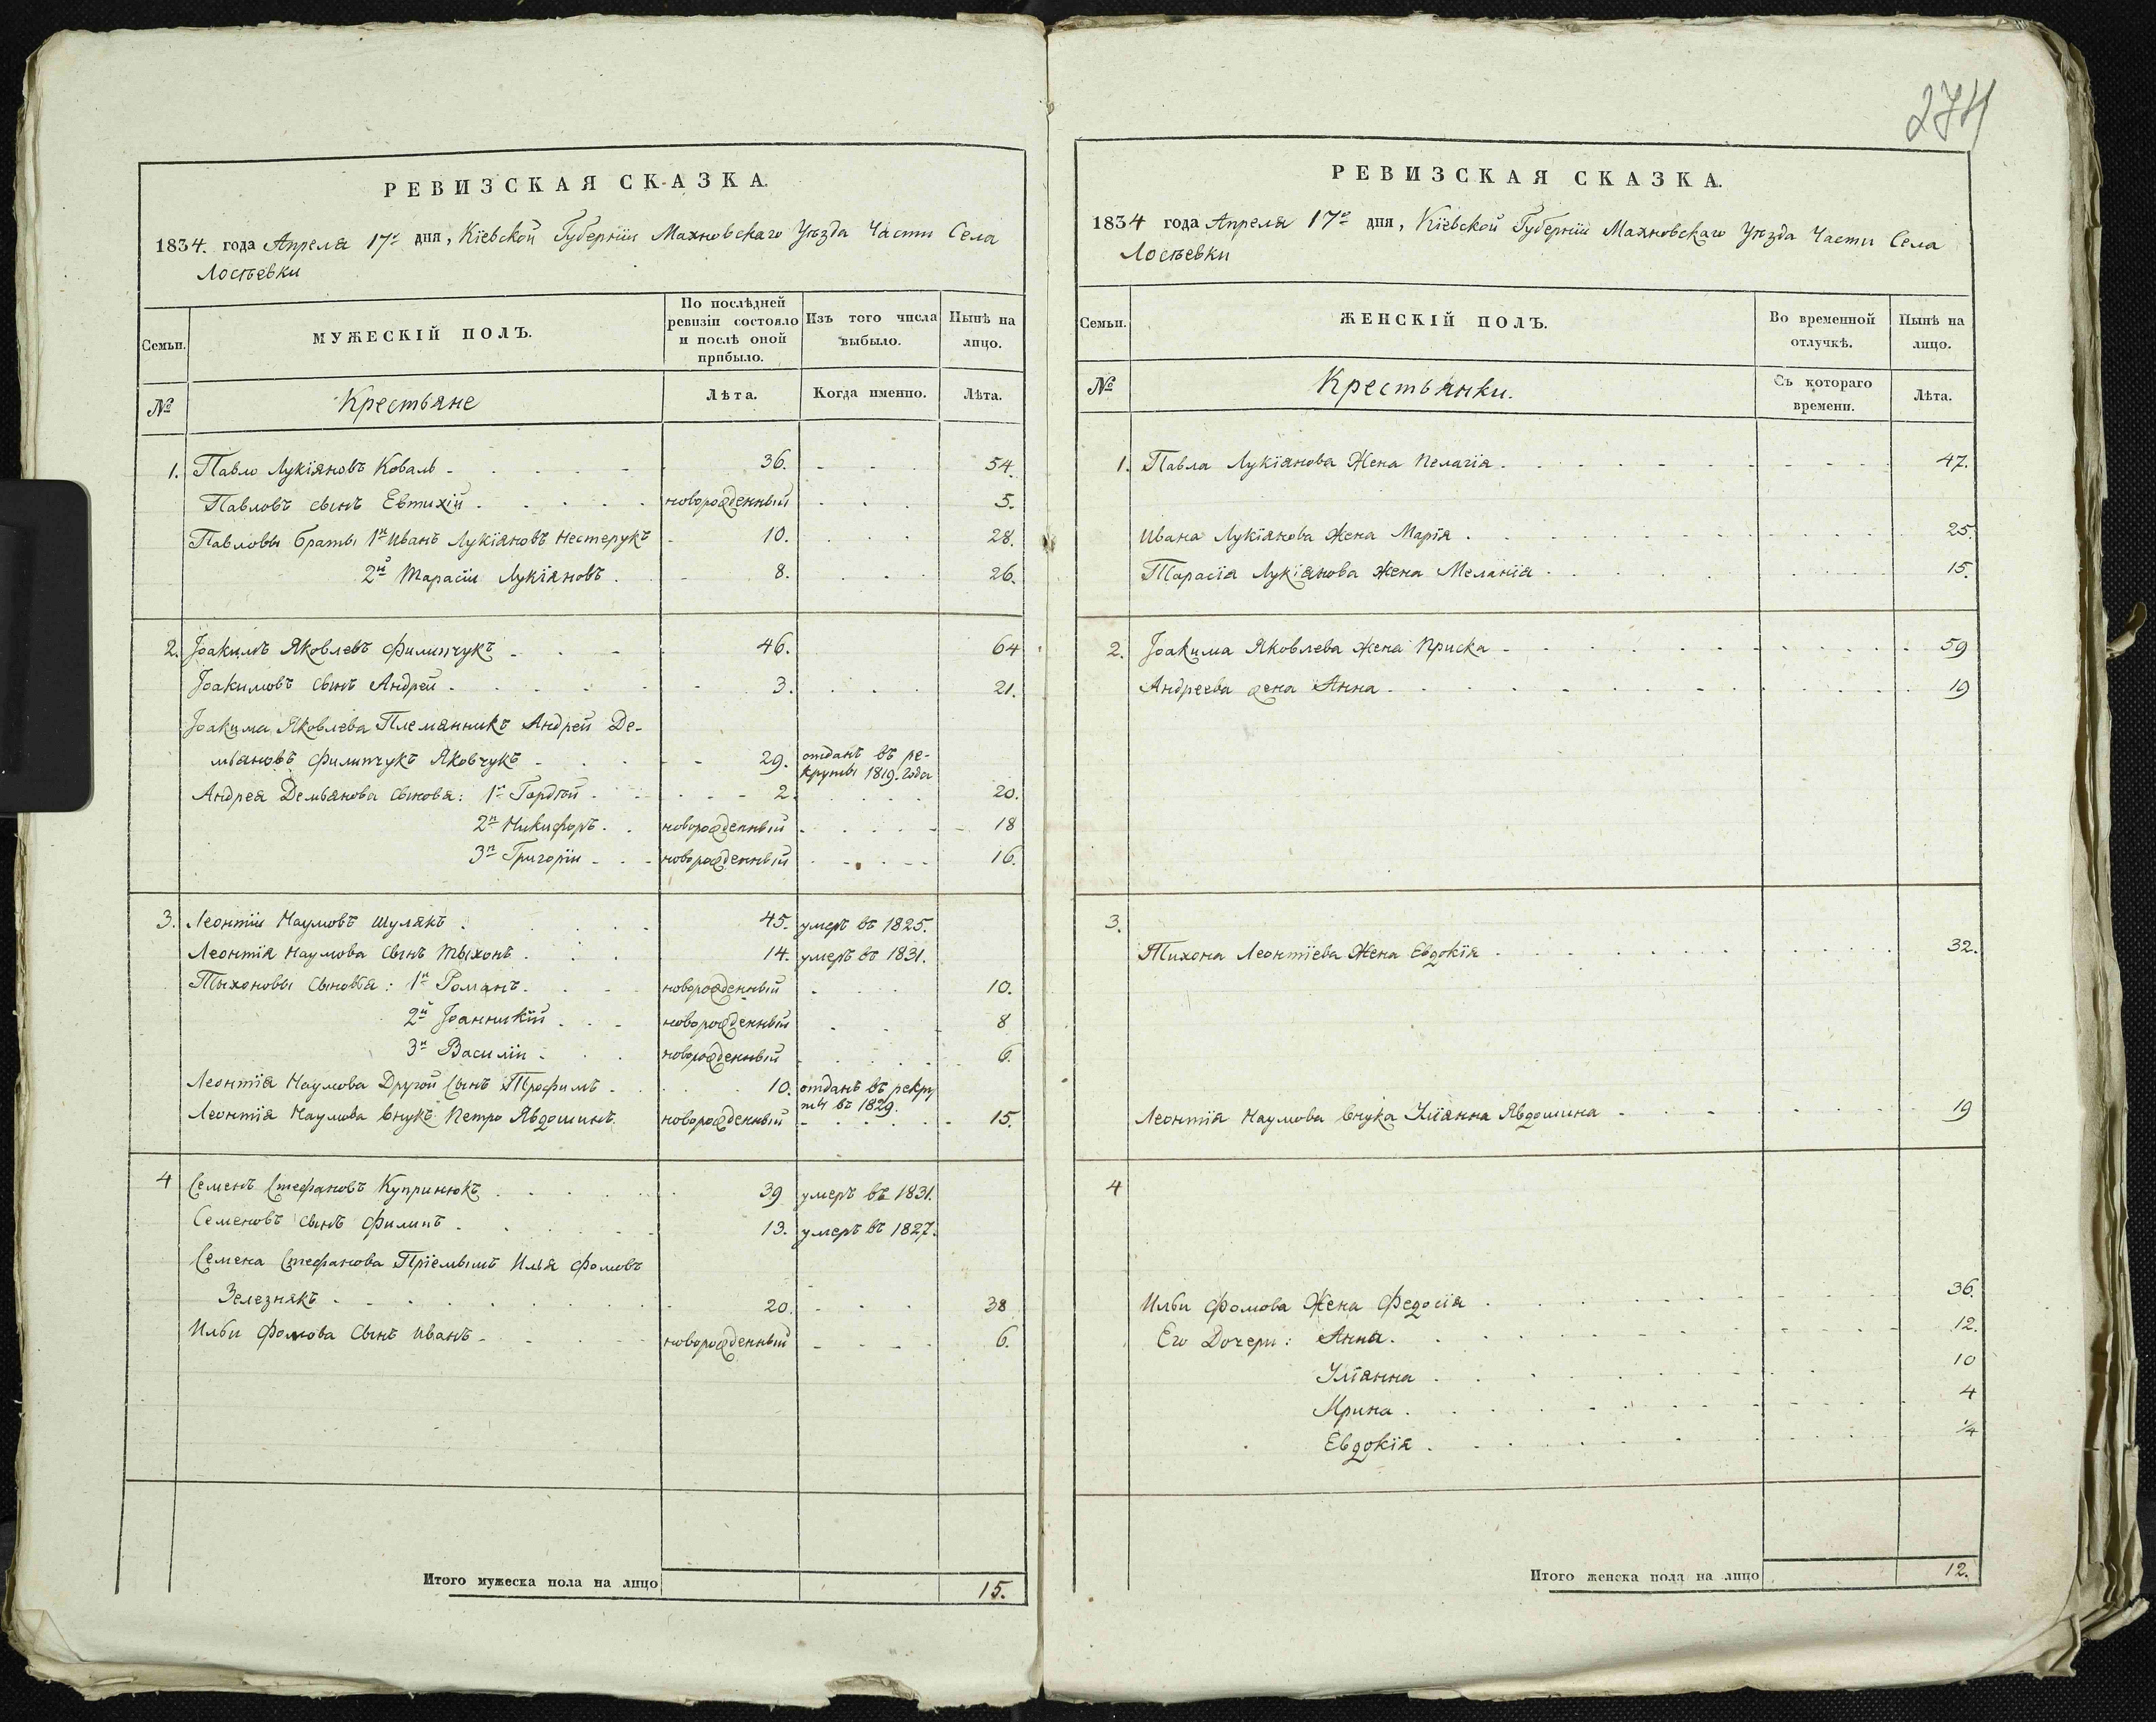 274
РЕВИЗСКАЯ СКАЗКА.
1834. года Апреля 17го дня, Кіевской Губерніи Махновскаго Уѣзда Части Села
Лосѣевки
Семьи.
МУЖЕСКІЙ ПОЛЪ.
По послѣдней
ревизіи состояло
и послѣ оной
прибыло.
Изъ того числа
выбыло.
Нынѣ на
лицо.
№
Крестьяне
Лѣта.
Когда именно.
Лѣта.
1. Павло Лукіяновъ Коваль 36. 54.
Павловъ сынъ Евтихій новорожденный 5.
Павловы браты 1й Иванъ Лукіяновъ Нестерукъ 10. 28.
2й Тарасіи Лукіяновъ 8. 26.
2. Іоакимъ Яковлевъ Филипчукъ 46. 64
Іоакимовъ сынъ Андрей 3. 21.
Іоакима Яковлева Племянникъ Андрей Де-
мьяновъ Филипчукъ Яковчукъ 29. отданъ въ ре-
круты 1819. года
Андрея Демьянова сынова: 1й Гордѣй 2. 20.
2й Никифоръ новорожденный 18
3й Григоріи новорожденный 16.
3. Леонтіи Наумовъ Шулякъ 45. умеръ въ 1825.
Леонтія Наумова сынъ Тыхонъ 14. умеръ въ 1831.
Тыхоновы сыновья: 1й Романъ новорожденный 10.
2й Іоанникій новорожденный 8
3й Василіи новорожденный 6.
Леонтія Наумова Другой Сынъ Трофимъ 10. отданъ въ рекру
ты въ 1829.
Леонтія Наумова внукъ Петро Явдошинъ новорожденный 15.
4 Семенъ Стефановъ Купринюкъ 39 умеръ въ 1831.
Семеновъ сынъ Филипъ 13. умеръ въ 1827.
Семена Стефанова Пріемышъ Илья Фомовъ
Зелезнякъ 20. 38
Ильи Фомова Сынъ Иванъ новорожденный 6.
Итого мужеска пола на лицо 15.
РЕВИЗСКАЯ СКАЗКА.
1834 года Апреля 17го дня, Кіевской Губерніи Махновскаго Уѣзда Части Села
Лосѣевки
Семьи.
ЖЕНСКІЙ ПОЛЪ.
Во временной
отлучкѣ.
Нынѣ на
лицо.
№
Крестьянки.
Съ котораго
времени.
Лѣта.
1. Павла Лукіанова Жена Пелагія 47.
Ивана Лукіанова Жена Марія 25.
Тарасія Лукіанова Жена Меланія 15.
2. Іоакима Яковлева Жена Приска 59
Андреева жена Анна 19
3.
Тихона Леонтіева Жена Евдокія 32.
Леонтія Наумова внука Уліанна Явдошина 19
4
Ильи Фомова Жена Федосія 36.
Его Дочери: Анна 12.
Уліанна 10
Ирина 4
Евдокія 1/4
Итого женска пола на лицо 12.